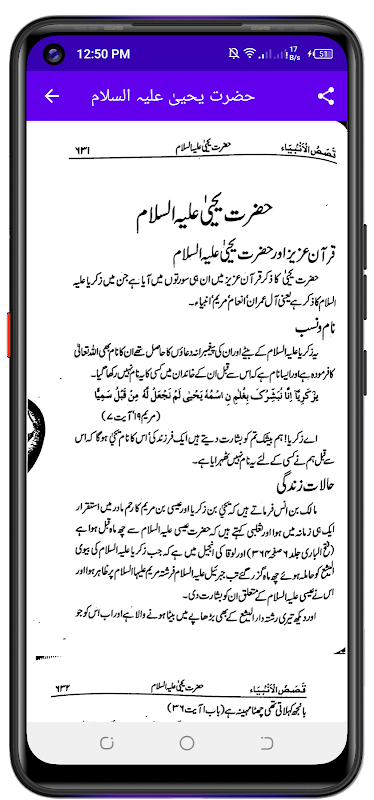 12:50 PM
17
B/s
51
حضرت یحییٰ علیہ السلام
قَصَصُ الْاَنْبِیَاء
حضرت یحییٰ علیہ السلام
۶۳۱
حضرت یحییٰ علیہ السلام
قرآن عزیز اور حضرت یحییٰ علیہ السلام
حضرت یحییٰ کا ذکر قرآن عزیز میں ان ہی سورتوں میں آیا ہے جن میں زکریا علیہ
السلام کا ذکر ہے یعنی آل عمران اَنعام مریم انبیاء۔
نام و نسب
یہ زکریا علیہ السلام کے بیٹے اور ان کی پیغمبرانہ دعاؤں کا حاصل تھے ان کا نام بھی اللہ تعالیٰ
کا فرمودہ ہے اور ایسا نام ہے کہ اس سے قبل ان کے خاندان میں کسی کا یہ نام نہیں رکھا گیا۔
یٰزَکَرِیَّا اِنَّا نُبَشِّرُکَ بِغُلٰمِ نِ اسْمُهٗ یَحْیٰی لَمْ نَجْعَلْ لَّهٗ مِنْ قَبْلُ سَمِیًّا
(مریم ۱۹ آیت ۷)
اے زکریا! ہم بیشک تم کو بشارت دیتے ہیں ایک فرزند کی اس کا نام یحییٰ ہوگا کہ اس
سے قبل ہم نے کسی کے لئے یہ نام نہیں ٹھہرایا ہے۔
حالات زندگی
مالک بن انس فرماتے ہیں کہ یحییٰ بن زکریا اور عیسیٰ بن مریم کا رحم مادر میں استقرار
ایک ہی زمانہ میں ہوا اور ثعلبی کہتے ہیں کہ حضرت عیسیٰ علیہ السلام سے چھ ماہ قبل ہوا ہے
(فتح الباری جلد ۶ صفحہ ۳۶۴) اور لوقا کی انجیل میں ہے کہ جب زکریا علیہ السلام کی بیوی
الیشبع کو حاملہ ہوئے چھ ماہ گزر گئے تب جبرئیل علیہ السلام فرشتہ مریم علیہا السلام پر ظاہر ہوا اور
اس نے عیسیٰ علیہ السلام کے متعلق ان کو بشارت دی۔
اور دیکھ تیری رشتہ دار الیشبع کے بھی بڑھاپے میں بیٹا ہونے والا ہے اور اب اس کو جو
قَصَصُ الْاَنْبِیَاء
حضرت یحییٰ علیہ السلام
۶۳۲
بانجھ کہلاتی تھی چھٹا مہینہ ہے (باب ۱ آیت ۳۶)